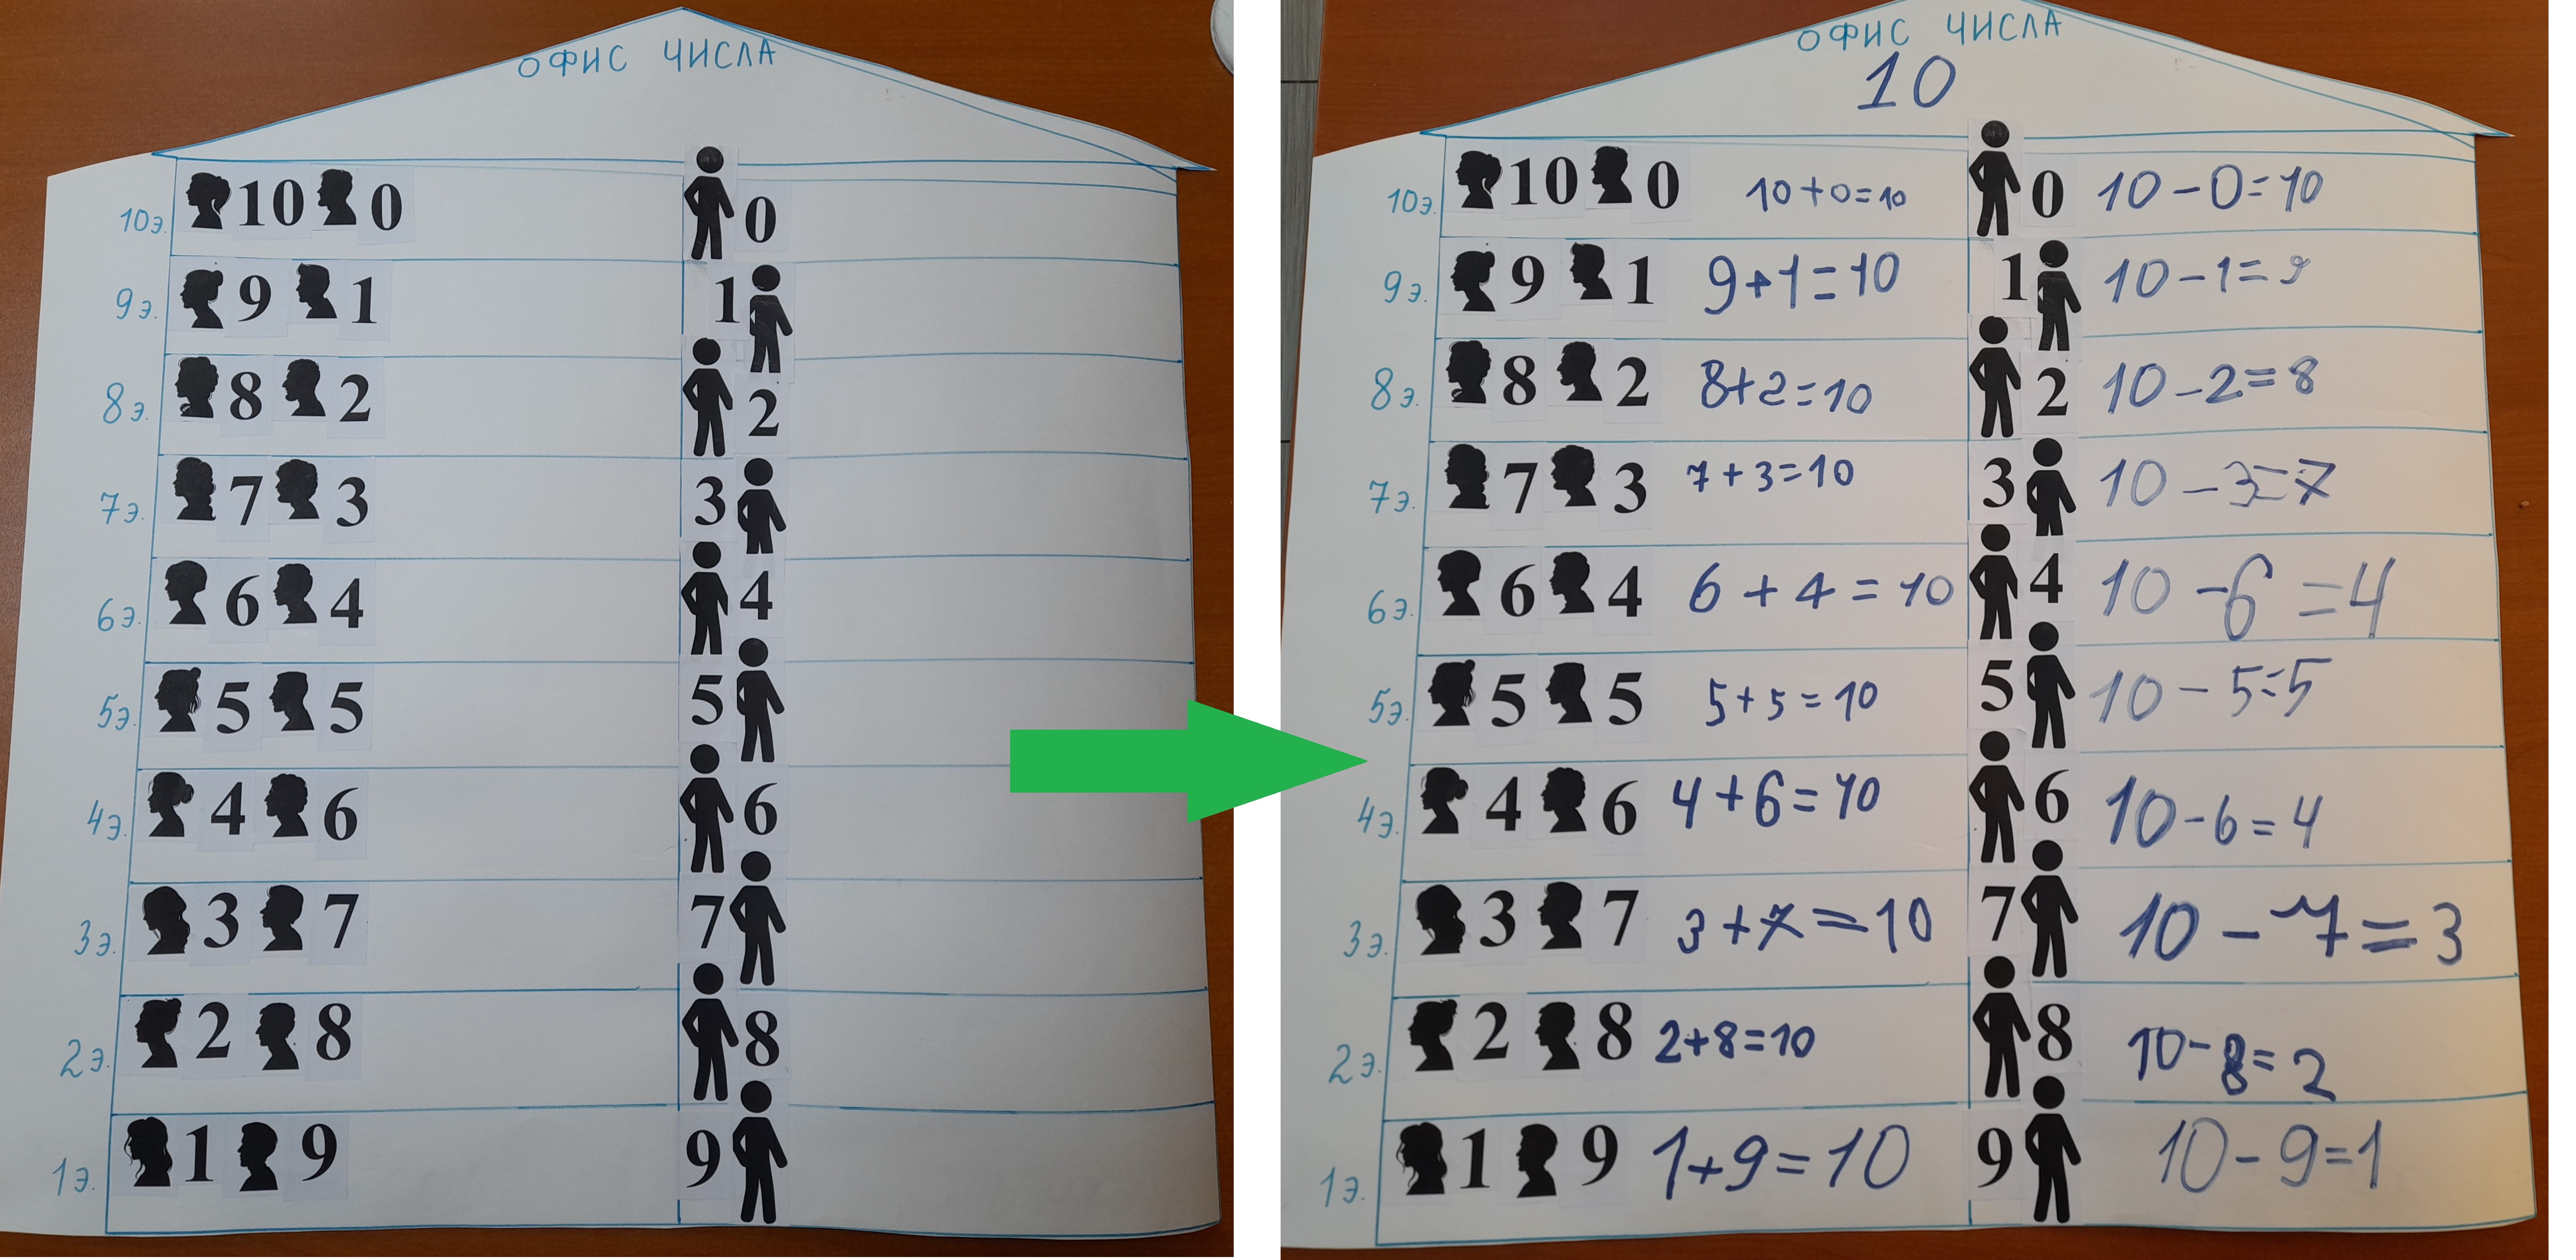 ОФИС ЧИСЛА
10э. 10 0 0
9э. 9 1 1
8э. 8 2 2
7э. 7 3 3
6э. 6 4 4
5э. 5 5 5
4э. 4 6 6
3э. 3 7 7
2э. 2 8 8
1э. 1 9 9
ОФИС ЧИСЛА
10
10э. 10 0 10+0=10 0 10-0=10
9э. 9 1 9+1=10 1 10-1=9
8э. 8 2 8+2=10 2 10-2=8
7э. 7 3 7+3=10 3 10-3=7
6э. 6 4 6+4=10 4 10-6=4
5э. 5 5 5+5=10 5 10-5=5
4э. 4 6 4+6=10 6 10-6=4
3э. 3 7 3+7=10 7 10-7=3
2э. 2 8 2+8=10 8 10-8=2
1э. 1 9 1+9=10 9 10-9=1